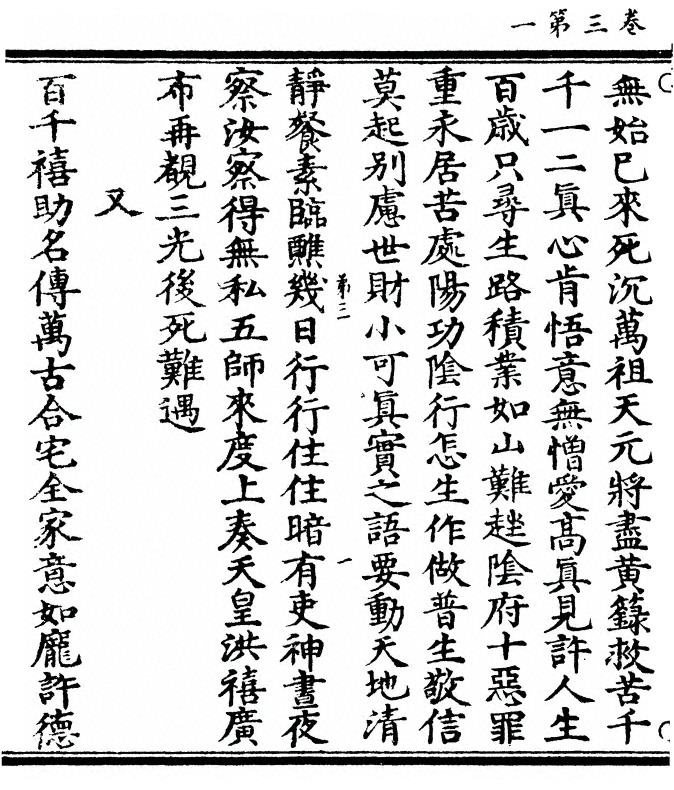 卷三第一
無始已來死沉萬祖天元將盡黃籙救苦千
千一二真心肯悟意無憎愛高真見許人生
百歲只尋生路積業如山難趖陰府十惡罪
重永居苦處陽功陰行怎生作做普生敬信
莫起别慮世財小可真實之語要動天地清
第三
一
靜餐素臨醮幾日行行住住暗有吏神晝夜
察汝察得無私五師來度上奏天皇洪禧廣
布再覩三光後死難遇
又
百千禧助名傳萬古合宅全家意如龐許德